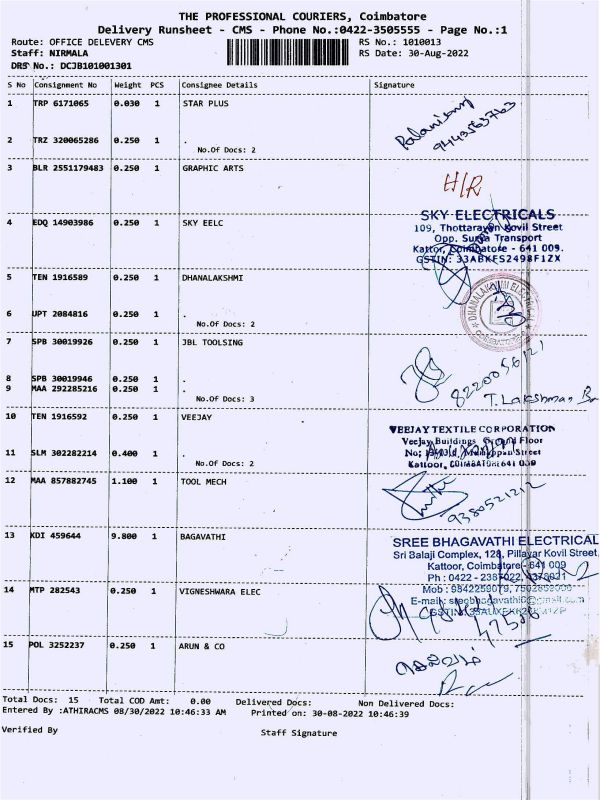 THE PROFESSIONAL COURIERS, Coimbatore
Delivery Runsheet - CMS - Phone No.:0422-3505555 - Page No.:1
Route: OFFICE DELEVERY CMS RS No.: 1010013
Staff: NIRMALA RS Date: 30-Aug-2022
DRS No.: DCJB101001301
S No Consignment No Weight PCS Consignee Details Signature
1 TRP 6171065 0.030 1 STAR PLUS
9443563763
2 TRZ 320065286 0.250 1 .
No.Of Docs: 2
3 BLR 2551179483 0.250 1 GRAPHIC ARTS
H/R
SKY ELECTRICALS
4 EDQ 14903986 0.250 1 SKY EELC
109, Thottarayan Kovil Street
Opp. Surya Transport
Kattor, Coimbatore - 641 009.
GSTIN: 33ABKFS2498F1ZX
5 TEN 1916589 0.250 1 DHANALAKSHMI
DHANALAKSHMI ELECTRICAL
COIMBATORE
6 UPT 2084816 0.250 1 .
No.Of Docs: 2
7 SPB 30019926 0.250 1 JBL TOOLSING
8 SPB 30019946 0.250 1
9 MAA 292285216 0.250 1 .
No.Of Docs: 3
8220056121
T. Lakshman
10 TEN 1916592 0.250 1 VEEJAY
VEEJAY TEXTILE CORPORATION
Veejay Buildings, Ground Floor
11 SLM 302282214 0.400 1 .
No.Of Docs: 2
Street
Kattoor, COIMBATORE 641 009
12 MAA 857882745 1.100 1 TOOL MECH
9380521212
13 KDI 459644 9.800 1 BAGAVATHI
SREE BHAGAVATHI ELECTRICAL
Sri Balaji Complex, 128, Pillayar Kovil Street,
Kattoor, Coimbatore - 641 009
Ph : 0422 -
Mob : 9842259079,
14 MTP 282543 0.250 1 VIGNESHWARA ELEC
E-mail:
GSTIN:
15 POL 3252237 0.250 1 ARUN & CO
Total Docs: 15 Total COD Amt: 0.00 Delivered Docs: Non Delivered Docs:
Entered By :ATHIRACMS 08/30/2022 10:46:33 AM Printed on: 30-08-2022 10:46:39
Verified By Staff Signature